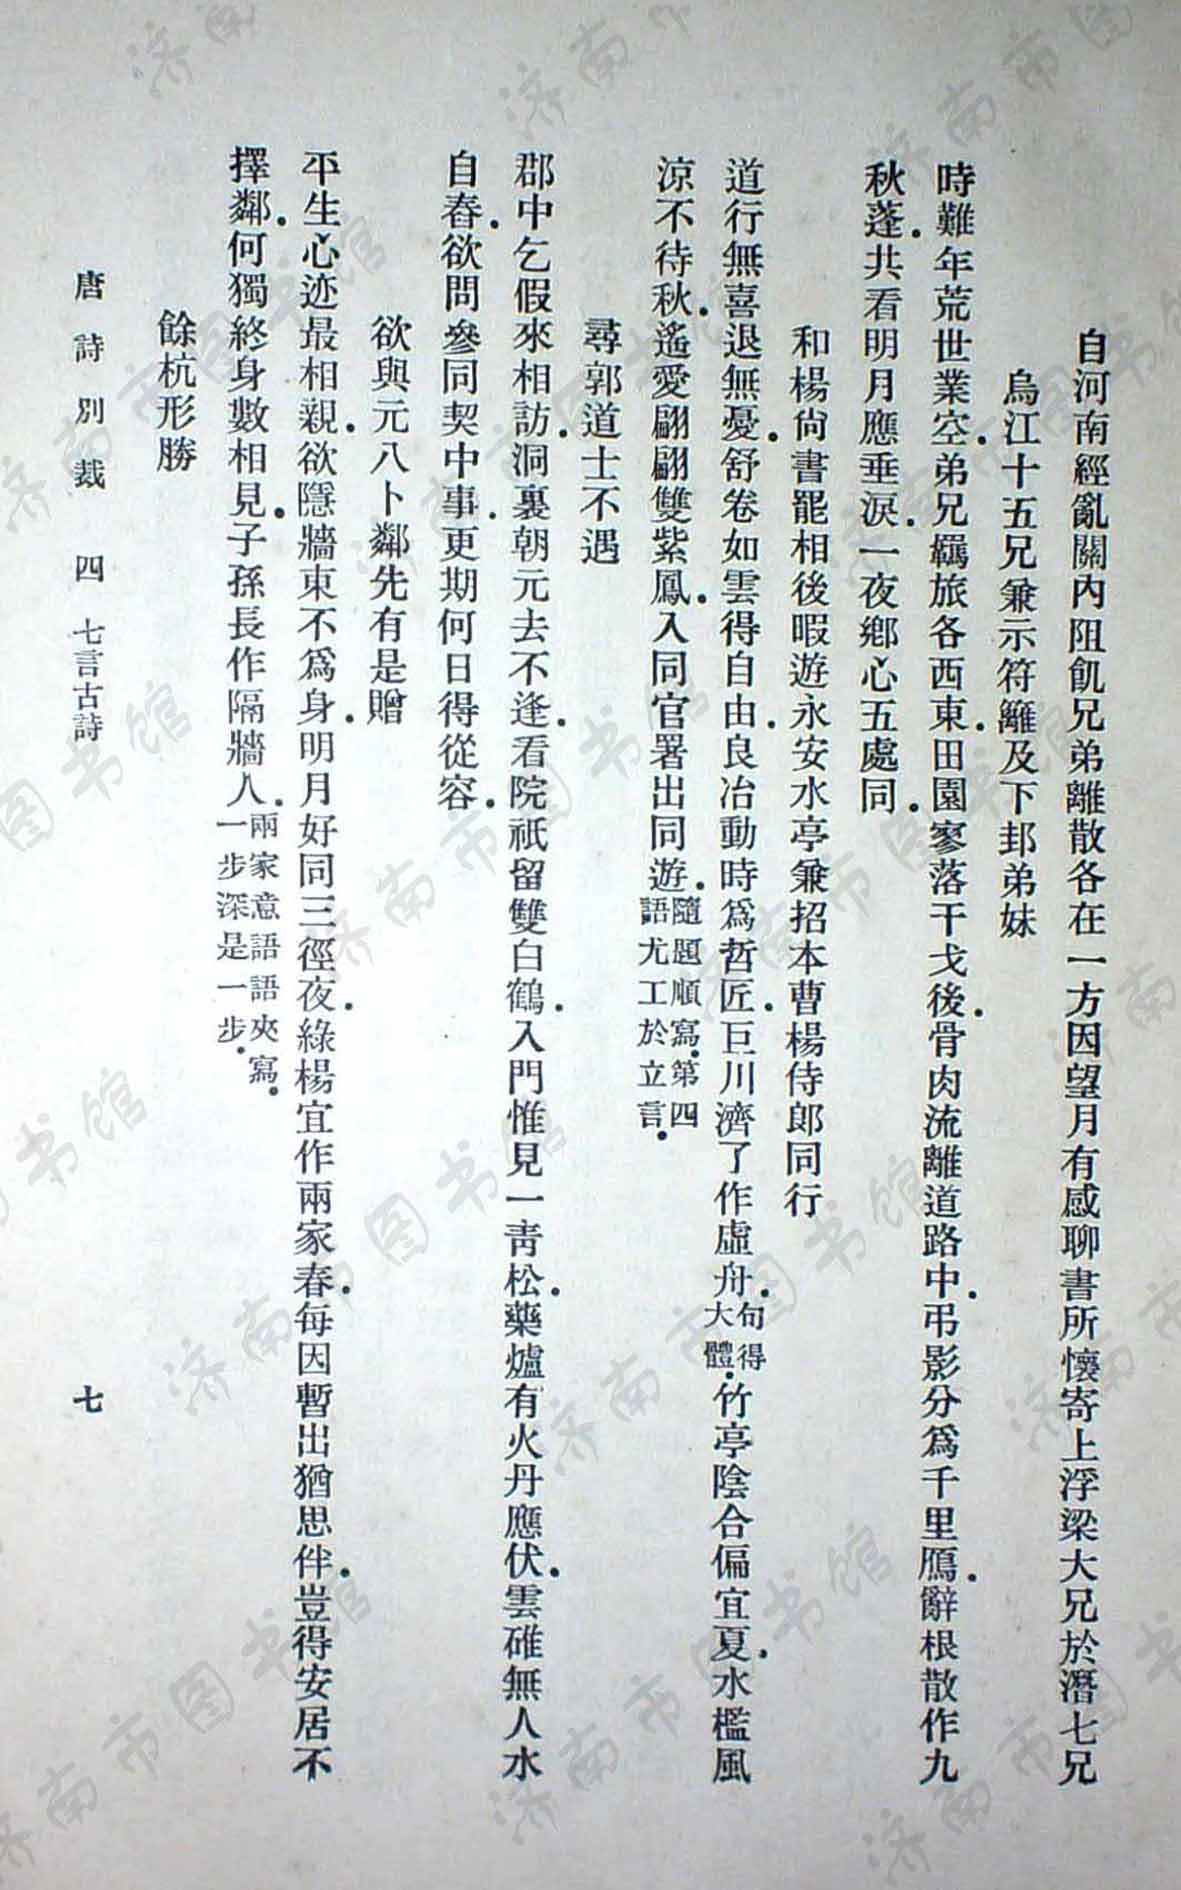 自河南經亂關內阻飢兄弟離散各在一方因望月有感聊書所懷寄上浮梁大兄於潛七兄
烏江十五兄兼示符離及下邽弟妹
時難年荒世業空．弟兄羈旅各西東．田園寥落干戈後．骨肉流離道路中．弔影分爲千里鴈．辭根散作九
秋蓬．共看明月應垂淚．一夜鄉心五處同．
和楊尙書罷相後暇遊永安水亭兼招本曹楊侍郎同行
道行無喜退無憂．舒卷如雲得自由．良冶動時爲哲匠．巨川濟了作虛舟．句得大體．竹亭陰合偏宜夏．水檻風
涼不待秋．遙愛翩翩雙紫鳳．入同官署出同遊．隨題順寫．第四語尤工於立言．
尋郭道士不遇
郡中乞假來相訪．洞裏朝元去不逢．看院祇留雙白鶴．入門惟見一靑松．藥爐有火丹應伏．雲碓無人水
自舂．欲問參同契中事．更期何日得從容．
欲與元八卜鄰先有是贈
平生心迹最相親．欲隱牆東不爲身．明月好同三徑夜．綠楊宜作兩家春．每因暫出猶思伴．豈得安居不
擇鄰．何獨終身數相見．子孫長作隔牆人．兩家意語語夾寫．一步深是一步．
餘杭形勝
唐詩別裁 四 七言古詩 七
济南市图书馆